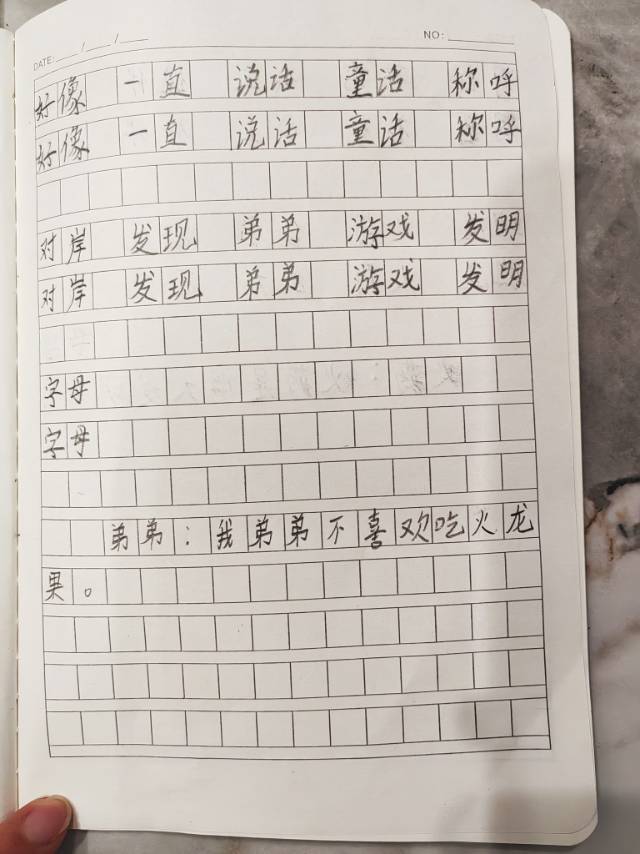 DATE: / / NO:
好像 一直 说话 童话 称呼
好像 一直 说话 童话 称呼
对岸 发现 弟弟 游戏 发明
对岸 发现 弟弟 游戏 发明
字母
字母
弟弟：我弟弟不喜欢吃火龙
果。